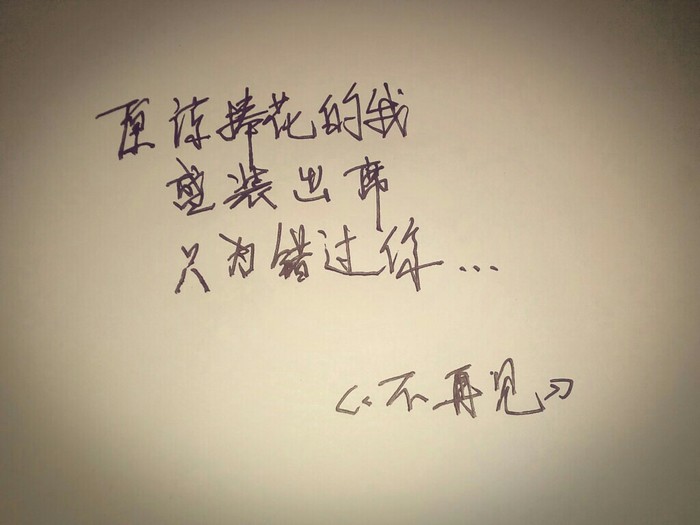 原谅捧花的我
盛装出席
只为错过你...
《不再见》